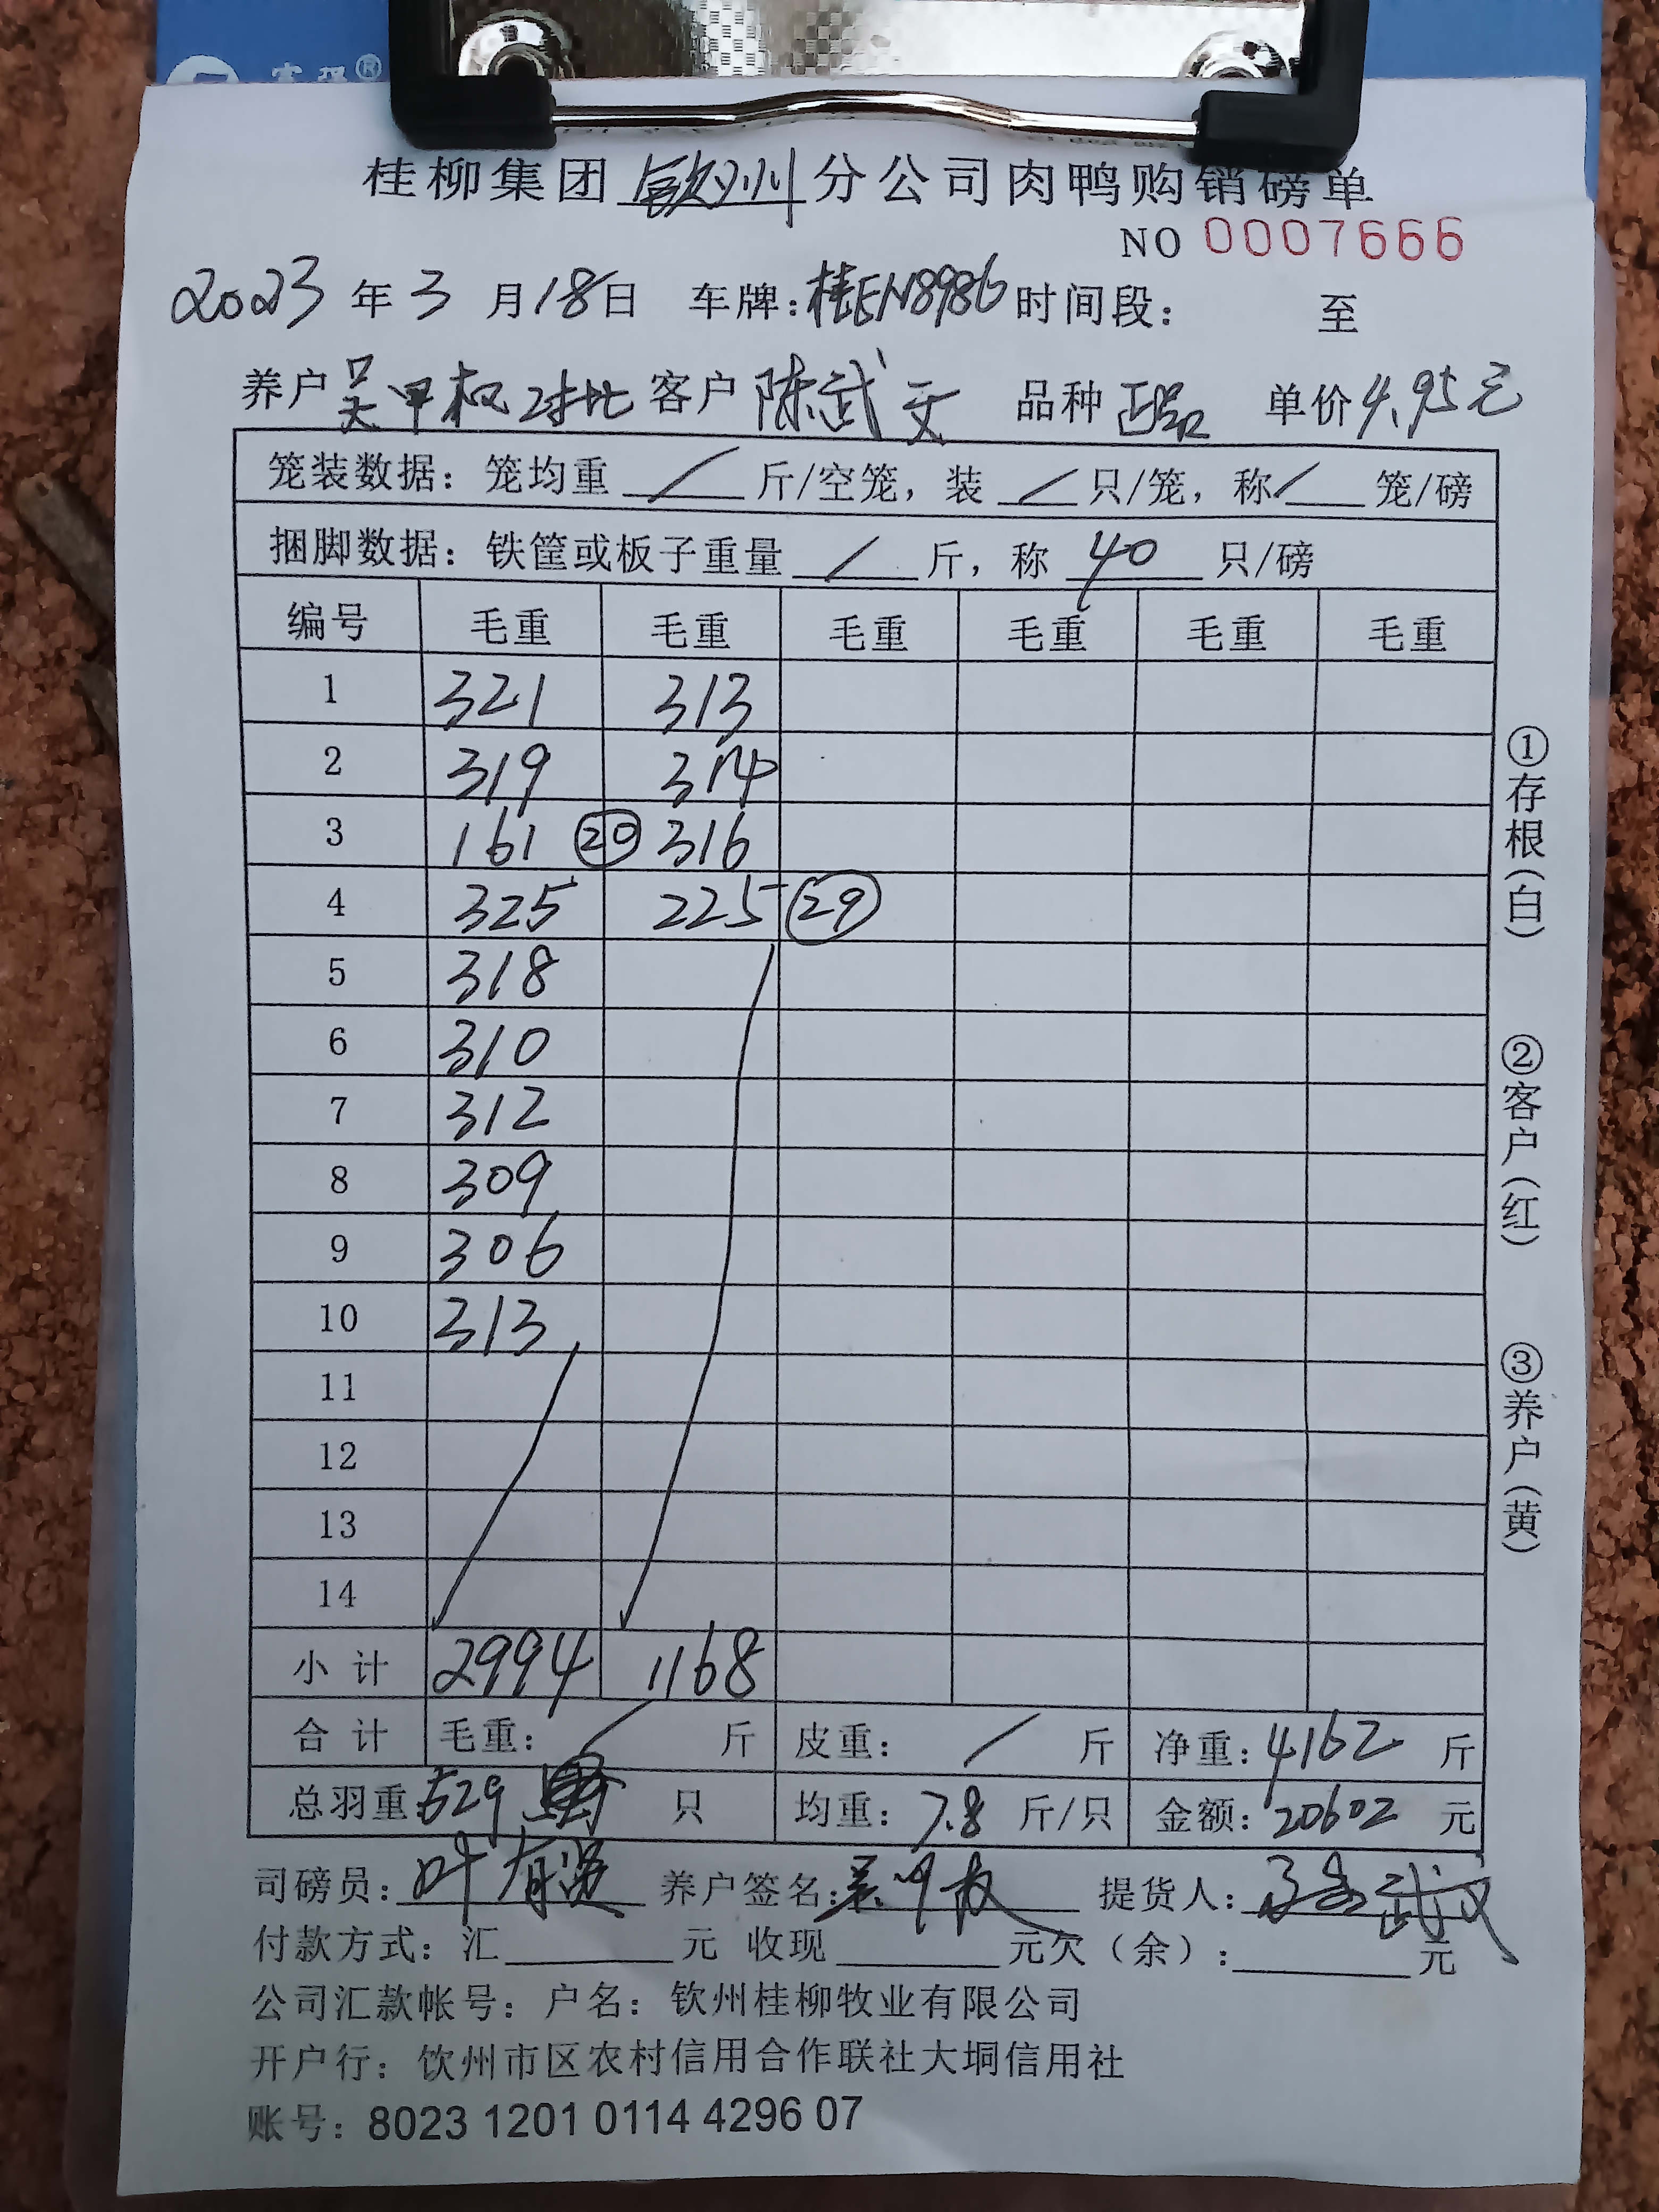 桂柳集团钦州分公司肉鸭购销磅单
NO 0007666
2023年3月18日 车牌:桂EN8986 时间段: 至
养户 吴甲权对比 客户 陈武文 品种 正品 单价 4.95元
笼装数据: 笼均重 / 斤/空笼, 装 / 只/笼, 称 / 笼/磅
捆脚数据: 铁筐或板子重量 / 斤, 称 40 只/磅
编号 毛重 毛重 毛重 毛重 毛重 毛重
1 321 313
2 319 314
3 161 ⑳ 316
4 325 225 ㉙
5 318
6 310
7 312
8 309
9 306
10 313
11
12
13
14
小计 2994 1168
合计 毛重: / 斤 皮重: / 斤 净重: 4162 斤
总羽重: 529 只 均重: 7.8 斤/只 金额: 20602 元
司磅员: 叶有 养户签名: 吴甲权 提货人: 武文
付款方式: 汇 元 收现 元欠(余): 元
公司汇款帐号: 户名: 钦州桂柳牧业有限公司
开户行: 钦州市区农村信用合作联社大垌信用社
账号: 8023 1201 0114 4296 07
①存根(白)
②客户(红)
③养户(黄)